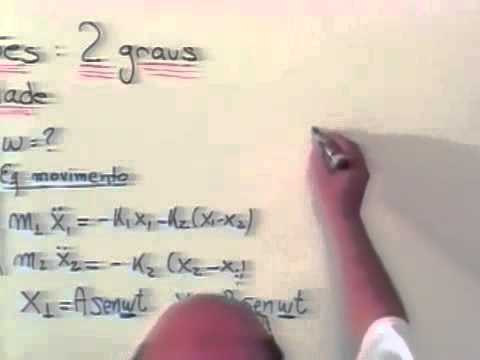 ões = 2 graus
dade
w = ?
Eq movimento
m₁ ẍ₁ = -K₁x₁-K₂(x₁-x₂)
m₂ ẍ₂ = -K₂ (x₂-x₁)
X₁ = A senwt senwt